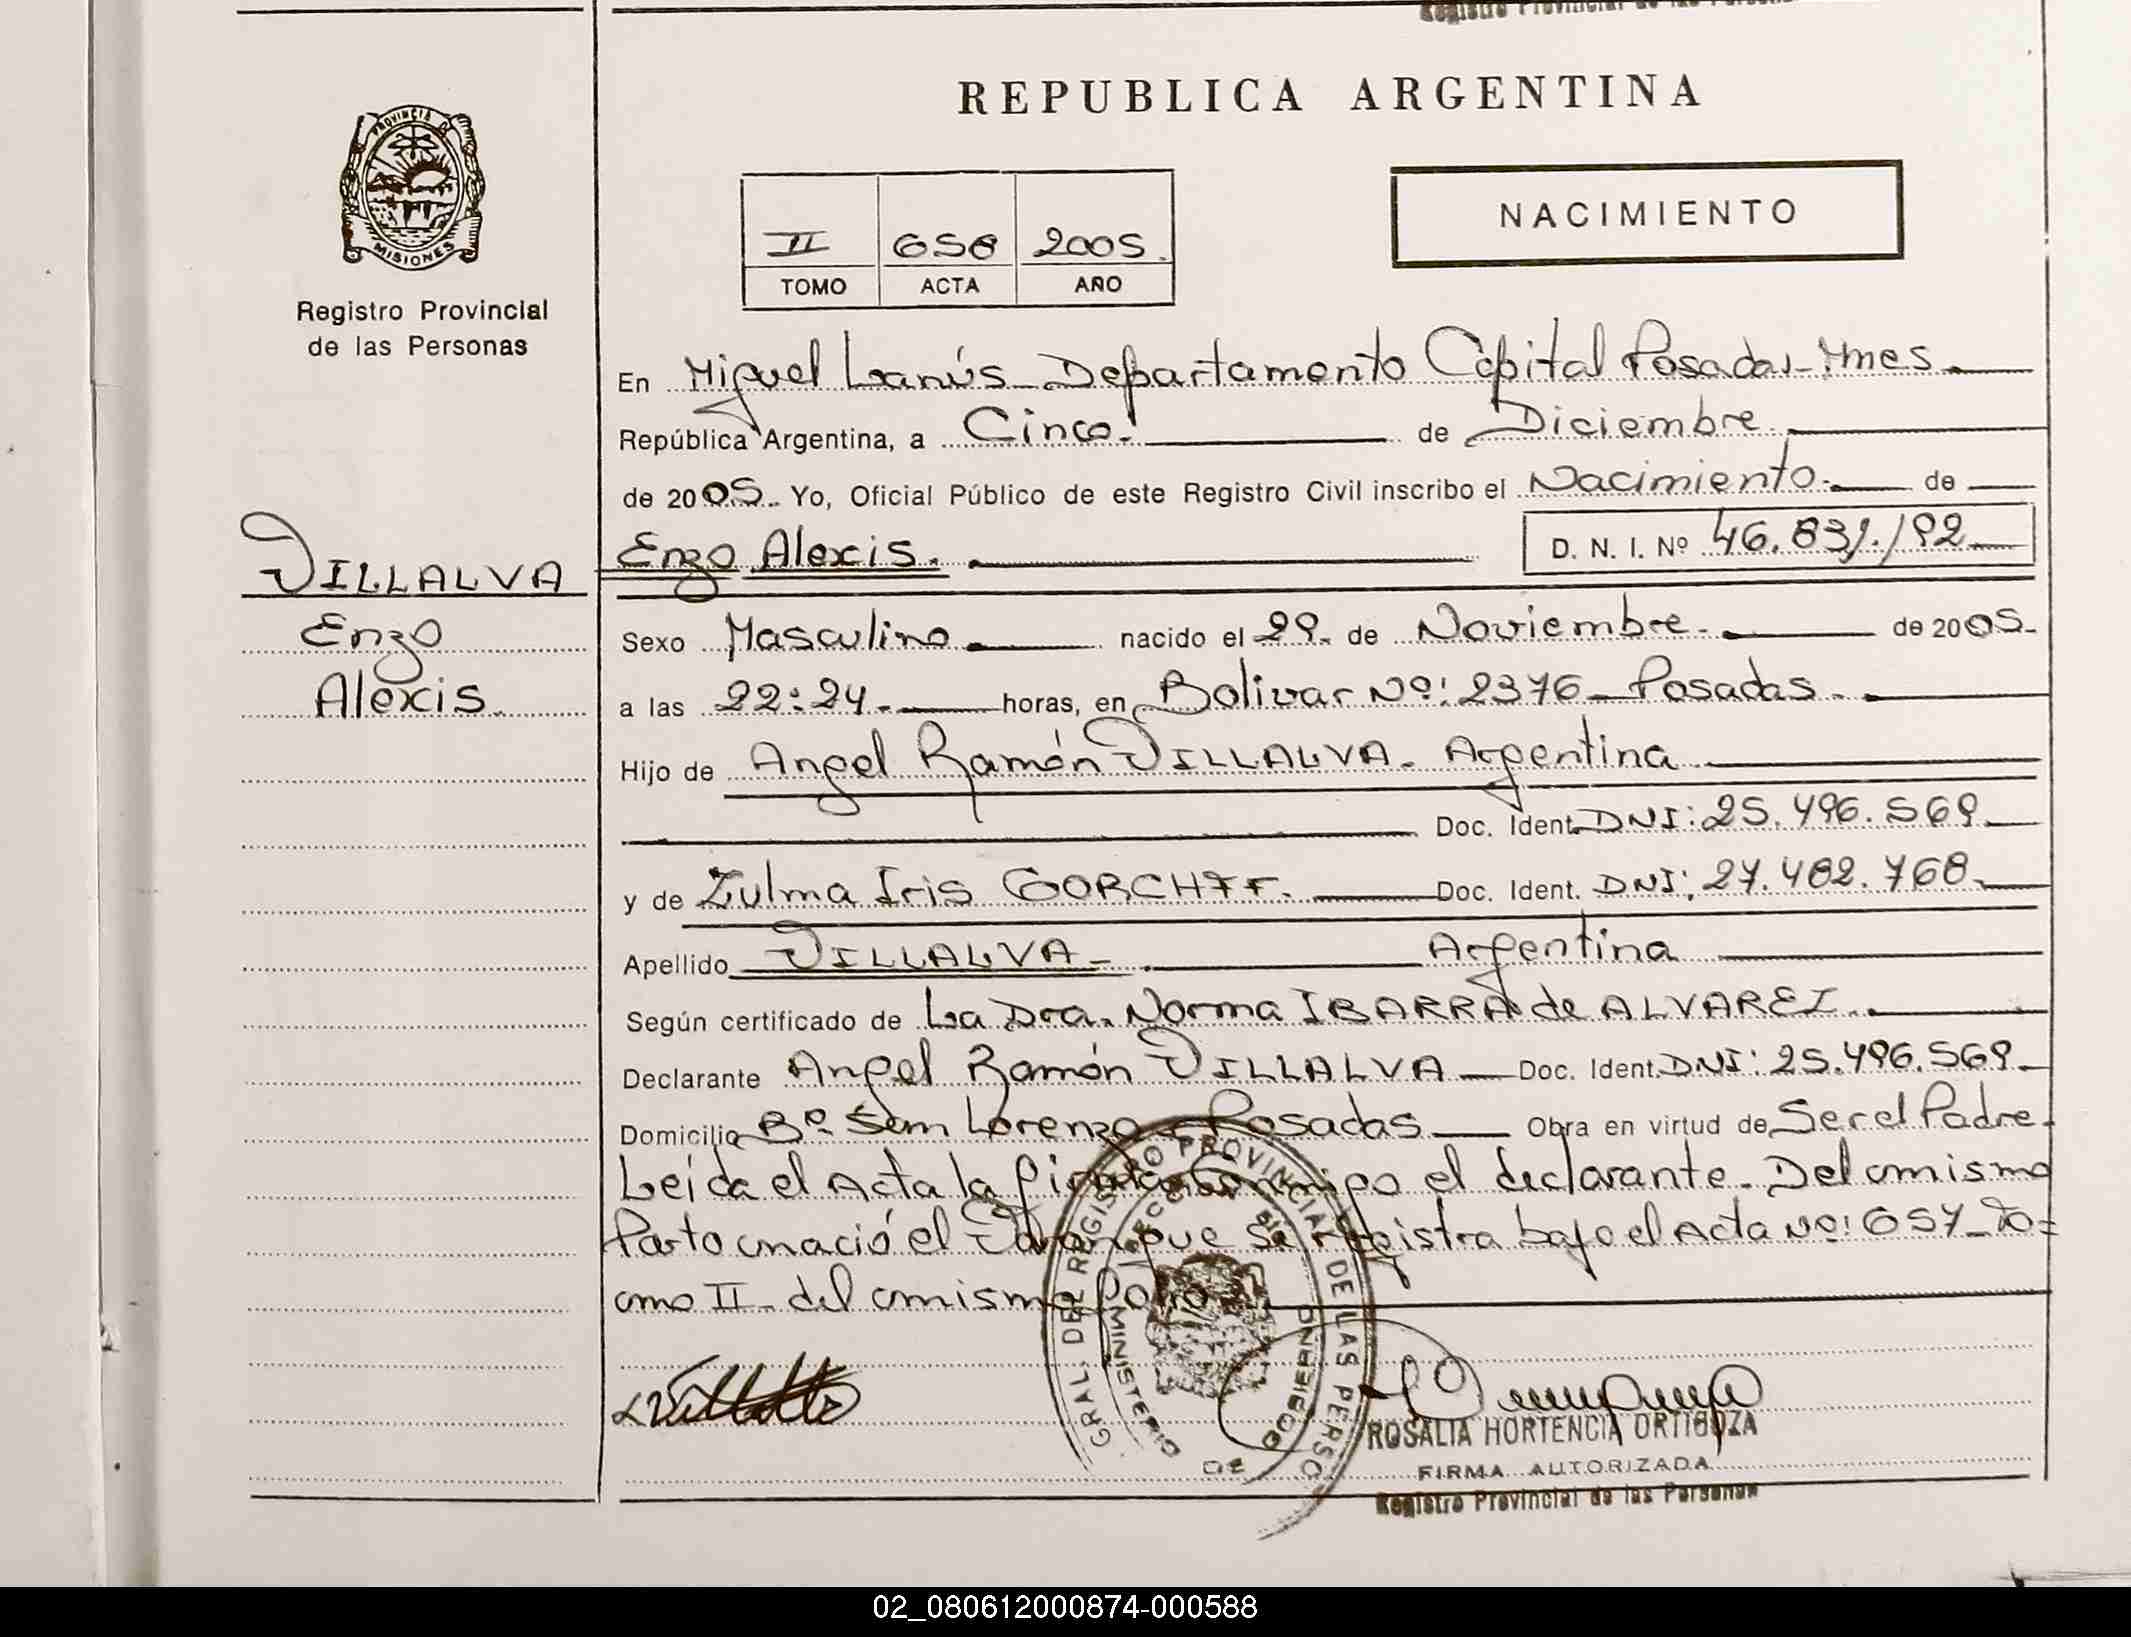 REPUBLICA ARGENTINA
PROVINCIA DE
MISIONES
Registro Provincial
de las Personas
II 658 2005.
TOMO ACTA AÑO
NACIMIENTO
En Miguel Lanús - Departamento Capital Posadas - Mnes
República Argentina, a Cinco. de Diciembre
de 2005. Yo, Oficial Público de este Registro Civil inscribo el Nacimiento. de
VILLALVA
Enzo
Alexis.
Enzo Alexis. D. N. I. Nº 46.831.192
Sexo Masculino nacido el 29. de Noviembre. de 2005.
a las 22:24. horas, en Bolivar Nº: 2376 - Posadas.
Hijo de Angel Ramón VILLALVA. Argentina
Doc. Ident. DNI: 25.496.569.
y de Zulma Iris GORCHFF. Doc. Ident. DNI: 27.482.768.
Apellido VILLALVA - Argentina
Según certificado de La Dra. Norma IBARRA de ALVAREZ.
Declarante Angel Ramón VILLALVA Doc. Ident. DNI: 25.496.569.
Domicilio Bº San Lorenzo - Posadas Obra en virtud de Ser el Padre.
Leída el Acta la firma conmigo el declarante. Del mismo
Parto nació el Varón que se registra bajo el Acta Nº: 657 - To=
mo II - del mismo folio.
GRAL. DEL REGISTRO PROVINCIAL DE LAS PERSO
MINISTERIO DE GOBIERNO
ROSALIA HORTENCIA ORTIGOZA
FIRMA AUTORIZADA
Registro Provincial de las Personas
02_080612000874-000588